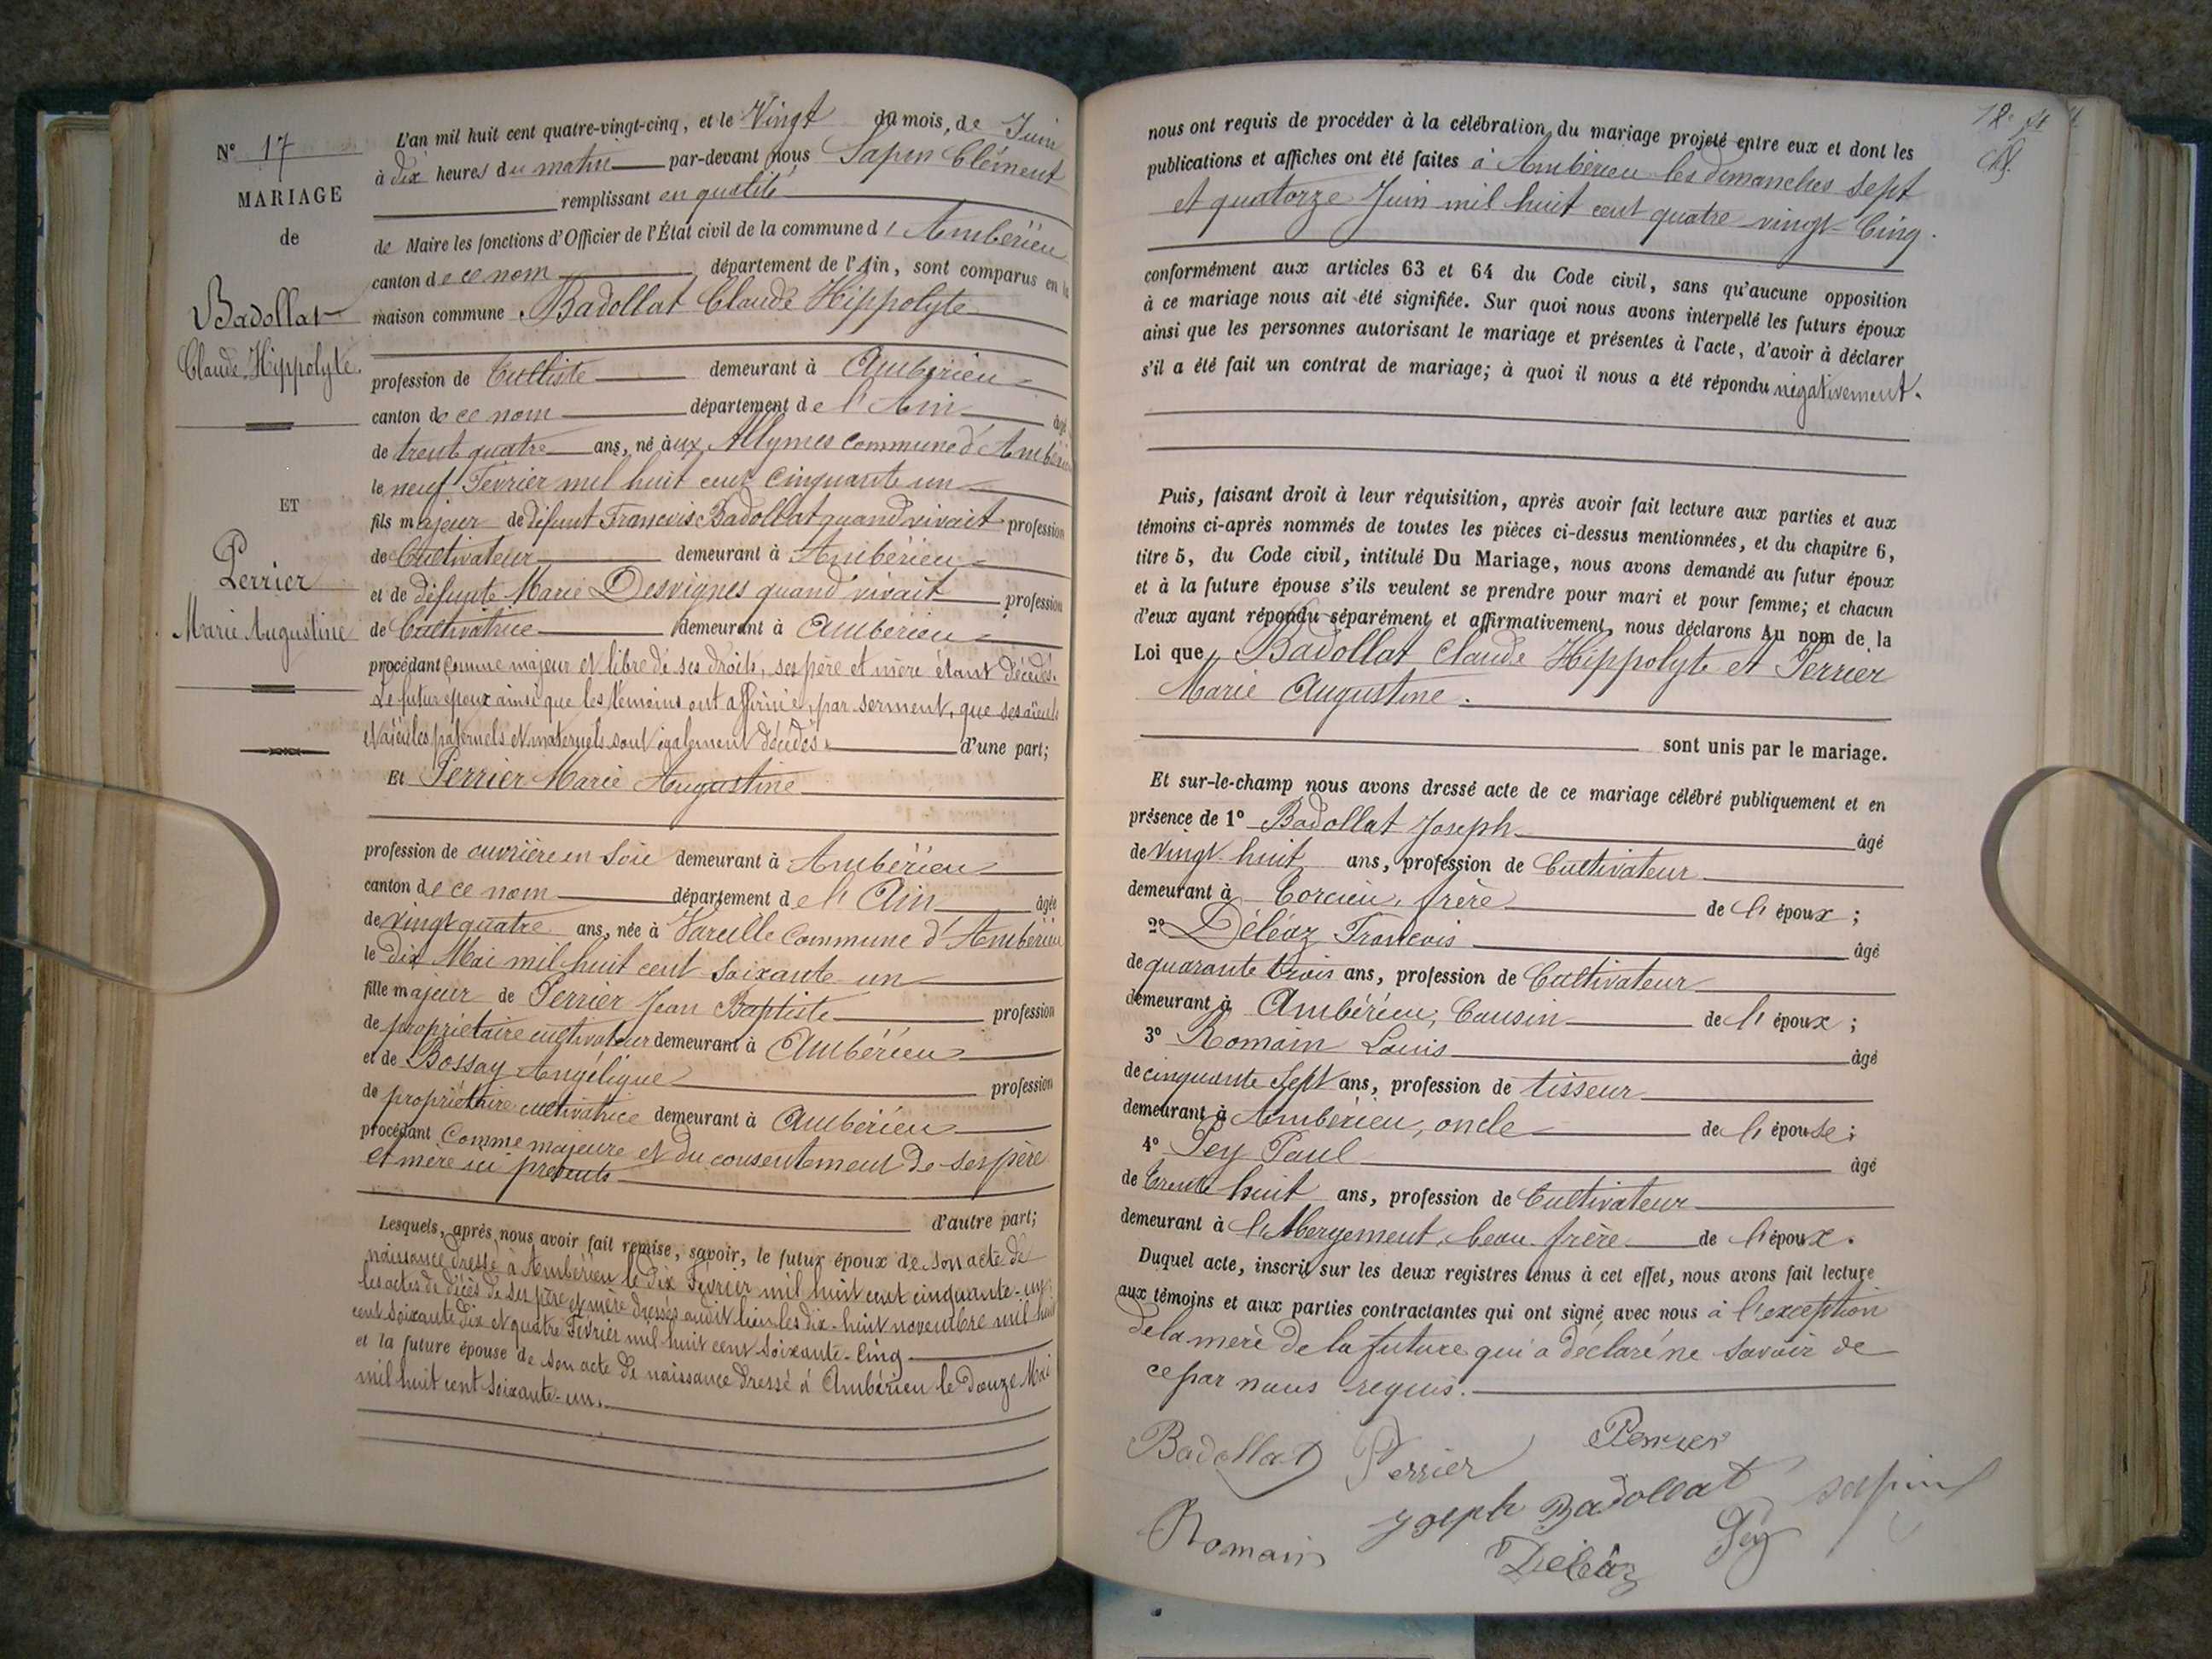 N° 17
MARIAGE
de
Badollat
Claude Hippolyte.
ET
Perrier
Marie Augustine
L'an mil huit cent quatre-vingt-cinq, et le Vingt du mois, de Juin
à dix heures du matin par-devant nous Sapin Clément
remplissant en qualité
de Maire les fonctions d'Officier de l'État civil de la commune d'Ambérieu
canton de ce nom département de l'Ain, sont comparus en la
maison commune Badollat Claude Hippolyte
profession de Cultiste demeurant à Ambérieu
canton de ce nom département de l'Ain âgé
de trente quatre ans, né aux Allymes commune d'Ambérieu
le neuf Février mil huit cent cinquante un
fils majeur de défunt Francois Badollat quand vivait profession
de Cultivateur demeurant à Ambérieu
et de défunte Marie Desvignes quand vivait profession
de Cultivatrice demeurant à Ambérieu
procédant comme majeur et libre de ses droits, ses père et mère étant décédés.
Le futur époux ainsi que les témoins ont affirmé, par serment, que ses aïeuls
et aïeules paternels et maternels sont également décédés. d'une part;
Et Perrier Marie Augustine
profession de ouvrière en soie demeurant à Ambérieu
canton de ce nom département de l'Ain âgée
de vingt quatre ans, née à Vareille Commune d'Ambérieu
le dix Mai mil huit cent soixante un
fille majeur de Perrier Jean Baptiste profession
de propriétaire cultivateur demeurant à Ambérieu
et de Bossay Angélique profession
de propriétaire cultivatrice demeurant à Ambérieu
procédant Comme majeure et du consentement de ses père
et mère ici présents
d'autre part;
Lesquels, après nous avoir fait remise, savoir, le futur époux de son acte de
naissance dressé à Ambérieu le dix Février mil huit cent cinquante-un
les actes de décès de ses père et mère dressés audit lieu les dix-huit novembre mil huit
cent soixante dix et quatre Février mil huit cent soixante-cinq
et la future épouse de son acte de naissance dressé à Ambérieu le douze Mai
mil huit cent soixante-un.
nous ont requis de procéder à la célébration du mariage projeté entre eux et dont les
publications et affiches ont été faites à Ambérieu les dimanches sept
et quatorze Juin mil huit cent quatre-vingt-Cinq.
conformément aux articles 63 et 64 du Code civil, sans qu'aucune opposition
à ce mariage nous ait été signifiée. Sur quoi nous avons interpellé les futurs époux
ainsi que les personnes autorisant le mariage et présentes à l'acte, d'avoir à déclarer
s'il a été fait un contrat de mariage; à quoi il nous a été répondu négativement.
Puis, faisant droit à leur réquisition, après avoir fait lecture aux parties et aux
témoins ci-après nommés de toutes les pièces ci-dessus mentionnées, et du chapitre 6,
titre 5, du Code civil, intitulé Du Mariage, nous avons demandé au futur époux
et à la future épouse s'ils veulent se prendre pour mari et pour femme; et chacun
d'eux ayant répondu séparément et affirmativement, nous déclarons Au nom de la
Loi que Badollat Claude Hippolyte et Perrier
Marie Augustine.
sont unis par le mariage.
Et sur-le-champ nous avons dressé acte de ce mariage célébré publiquement et en
présence de 1° Badollat Joseph âgé
de vingt huit ans, profession de Cultivateur
demeurant à Corcieu, frère de l'époux;
2° Déléaz Francois âgé
de quarante trois ans, profession de Cultivateur
demeurant à Ambérieu, Cousin de l'époux;
3° Romain Louis âgé
de cinquante sept ans, profession de tisseur
demeurant à Ambérieu, oncle de l'épouse;
4° Pey Paul âgé
de trente huit ans, profession de Cultivateur
demeurant à l'Abergement, beau-frère de l'époux.
Duquel acte, inscrit sur les deux registres tenus à cet effet, nous avons fait lecture
aux témoins et aux parties contractantes qui ont signé avec nous à l'exception
de la mère de la future qui a déclaré ne savoir de
ce par nous requis.
Badollat Perrier Perrier
Joseph Badollat Sapin
Romain Déléaz Pey